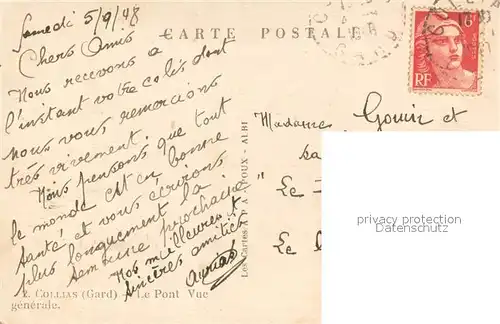 Samedi 5/9/48
Chers Amis
Nous recevons a
l'instant votre colis dont
nous vous remercions
très vivement.
Nous pensons que tout
le monde est en bonne
santé et vous écrirons
plus longuement la
semaine prochaine
Nos meilleures et
sincères amitiés
CARTE POSTALE
RF
Madame Gouin et
"Le
Le
Les Cartes APOUX - ALBI
2. COLLIAS (Gard) - Le Pont Vue
générale.
privacy protection
Datenschutz